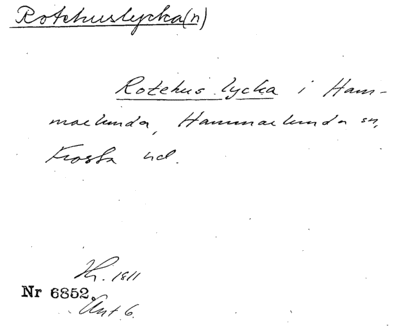 Rotehuslycka(n)
Rotehus lycka i Ham-
marlunda, Hammarlunda sn,
Frosta hd.
Hr. 1811
Nr 6852.
Ant 6.